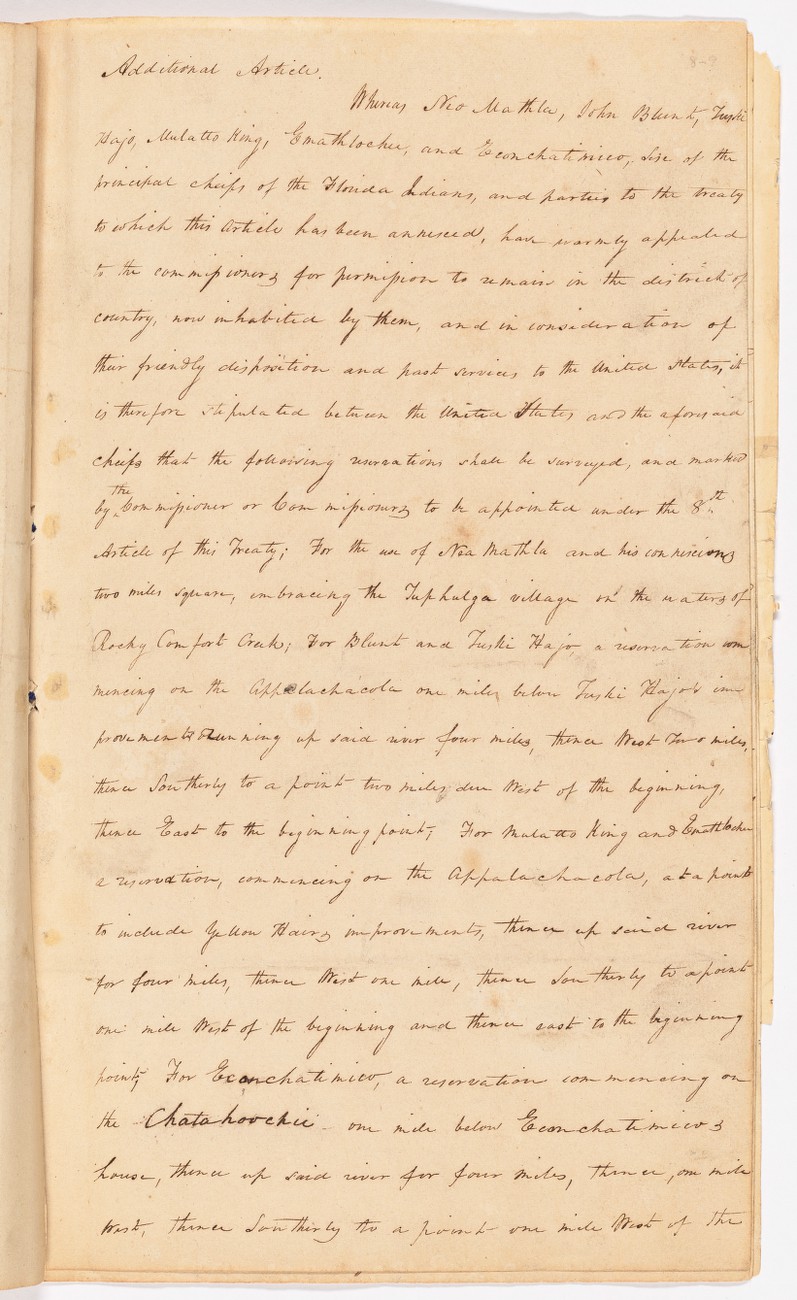 8-9
Additional Article.
Whereas Neo Mathla, John Blunt, Tuski
Hajo, Mulatto King, Emathlochee, and Econchatimico, Six of the
principal chiefs of the Florida Indians, and parties to the treaty
to which this article has been annexed, have warmly appealed
to the commissioners for permission to remain in the district of
country, now inhabited by them, and in consideration of
their friendly disposition and past services to the United States, it
is therefore stipulated between the United States and the aforesaid
chiefs that the following reservations shall be surveyed, and marked
by the Commissioner or Commissioners to be appointed under the 8th
Article of this Treaty; For the use of Nea Mathla and his connexions
two miles square, embracing the Tuphulga village on the waters of
Rocky Comfort Creek; For Blunt and Tuski Hajo, a reservation com
mencing on the Appalachacola one mile below Tuski Hajo's im
provements running up said river four miles, thence West Two miles,
thence Southerly to a point two miles due West of the beginning,
thence East to the beginning point; For Mulatto King and Emathlochee
a reservation, commencing on the Appalachacola, at a point
to include Yellow Hairs improvements, thence up said river
for four miles, thence West one mile, thence Southerly to a point
one mile West of the beginning and thence east to the beginning
point; For Econchatimico, a reservation commencing on
the Chatahoochie one mile below Econchatimico's
house, thence up said river for four miles, thence, one mile
West, thence Southerly to a point one mile West of the